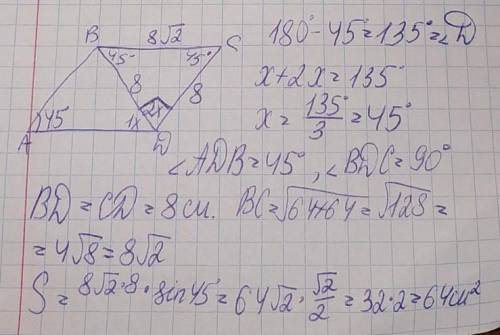 B 8√2 C
45° 45°
8 8
45 1x 2x
A D
180° - 45° = 135° = ∠D
x + 2x = 135°
x = 135°/3 = 45°
∠ADB = 45°, ∠BDC = 90°
BD = CD = 8 см. BC = √64+64 = √128 =
= 4√8 = 8√2
S = 8√2 · 8 · sin 45° = 64√2 · √2/2 = 32·2 = 64 см²